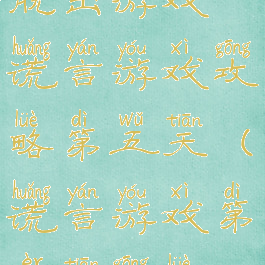 脱出游戏
huǎng yán yóu xì gōng
谎言游戏攻
lüè dì wǔ tiān
略第五天（
huǎng yán yóu xì dì
谎言游戏第
èr tiān gōng lüè